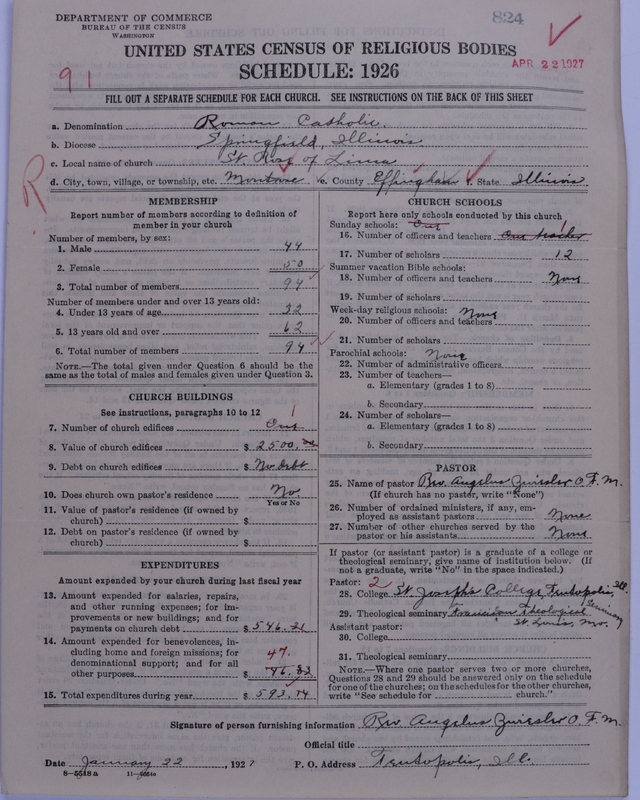 DEPARTMENT OF COMMERCE
BUREAU OF THE CENSUS
WASHINGTON
824
UNITED STATES CENSUS OF RELIGIOUS BODIES
APR 22 1927
91
SCHEDULE: 1926
FILL OUT A SEPARATE SCHEDULE FOR EACH CHURCH. SEE INSTRUCTIONS ON THE BACK OF THIS SHEET
a. Denomination Roman Catholic
b. Diocese Springfield, Illinois
c. Local name of church St. Rose of Lima
R
d. City, town, village, or township, etc. Montrose e. County Effingham f. State Illinois
MEMBERSHIP
Report number of members according to definition of
member in your church
Number of members, by sex:
1. Male 44
2. Female 50
3. Total number of members 94
Number of members under and over 13 years old:
4. Under 13 years of age 32
5. 13 years old and over 62
6. Total number of members 94
NOTE.—The total given under Question 6 should be the
same as the total of males and females given under Question 3.
CHURCH BUILDINGS
See instructions, paragraphs 10 to 12
1
7. Number of church edifices One
8. Value of church edifices $ 2500.
9. Debt on church edifices $ No debt
10. Does church own pastor's residence No
Yes or No
11. Value of pastor's residence (if owned by
church) $
12. Debt on pastor's residence (if owned by
church) $
EXPENDITURES
Amount expended by your church during last fiscal year
13. Amount expended for salaries, repairs,
and other running expenses; for im-
provements or new buildings; and for
payments on church debt $
14. Amount expended for benevolences, in-
cluding home and foreign missions; for
denominational support; and for all
other purposes $
47.
15. Total expenditures during year $ 593.
CHURCH SCHOOLS
Report here only schools conducted by this church
Sunday schools: One
1
16. Number of officers and teachers One teacher
17. Number of scholars 12
Summer vacation Bible schools:
18. Number of officers and teachers None
19. Number of scholars
Week-day religious schools: None
20. Number of officers and teachers
21. Number of scholars
Parochial schools: None
22. Number of administrative officers
23. Number of teachers—
a. Elementary (grades 1 to 8)
b. Secondary
24. Number of scholars—
a. Elementary (grades 1 to 8)
b. Secondary
PASTOR
25. Name of pastor Rev. Angelus O.F.M.
(If church has no pastor, write "None")
26. Number of ordained ministers, if any, em-
ployed as assistant pastors None
27. Number of other churches served by the
pastor or his assistants None
If pastor (or assistant pastor) is a graduate of a college or
theological seminary, give name of institution below. (If
not a graduate, write "No" in the space indicated.)
Pastor: 2
28. College St. Joseph's College, Teutopolis, Ill.
29. Theological seminary Franciscan Theological Seminary
St. Louis, Mo.
Assistant pastor:
30. College
31. Theological seminary
NOTE.—Where one pastor serves two or more churches,
Questions 28 and 29 should be answered only on the schedule
for one of the churches; on the schedules for the other churches,
write "See schedule for church."
Signature of person furnishing information Rev. Angelus O.F.M.
Official title
Date January 22, 1927 P. O. Address Teutopolis, Ill.